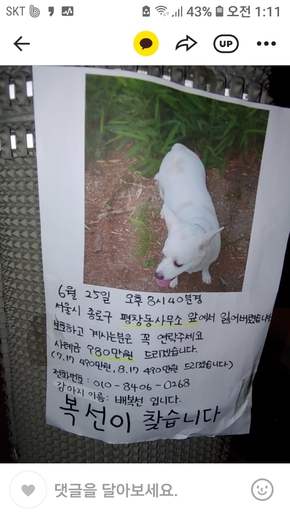 SKT 43% 오전 1:11
UP
6월 25일 오후 8시40분경
서울시 종로구 평창동사무소 앞에서 잃어버렸습니다
보호하고 계시는분은 꼭 연락주세요
사례금 980만원 드리겠습니다.
(7.17 490만원, 8.17 490만원 드리겠습니다)
전화번호: 010-8406-0268
강아지 이름: 배복선 입니다.
복선이 찾습니다
댓글을 달아보세요.